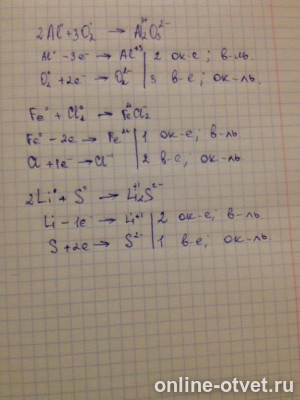 2Al⁰ + 3O₂⁰ → Al₂⁺³O₃²⁻
Al⁰ - 3e⁻ → Al⁺³ | 2 ок-е; в-ль
O₂⁰ + 2e⁻ → O₂²⁻ | 3 в-е; ок-ль.
Fe⁰ + Cl₂⁰ → Fe²⁺Cl₂
Fe⁰ - 2e → Fe²⁺ | 1 ок-е; в-ль
Cl + 1e⁻ → Cl⁻¹ | 2 в-е, ок-ль.
2Li⁰ + S⁰ → Li₂⁺¹S²⁻
Li - 1e → Li⁺¹ | 2 ок-е, в-ль.
S + 2e → S²⁻ | 1 в-е; ок-ль.
online-otvet.ru